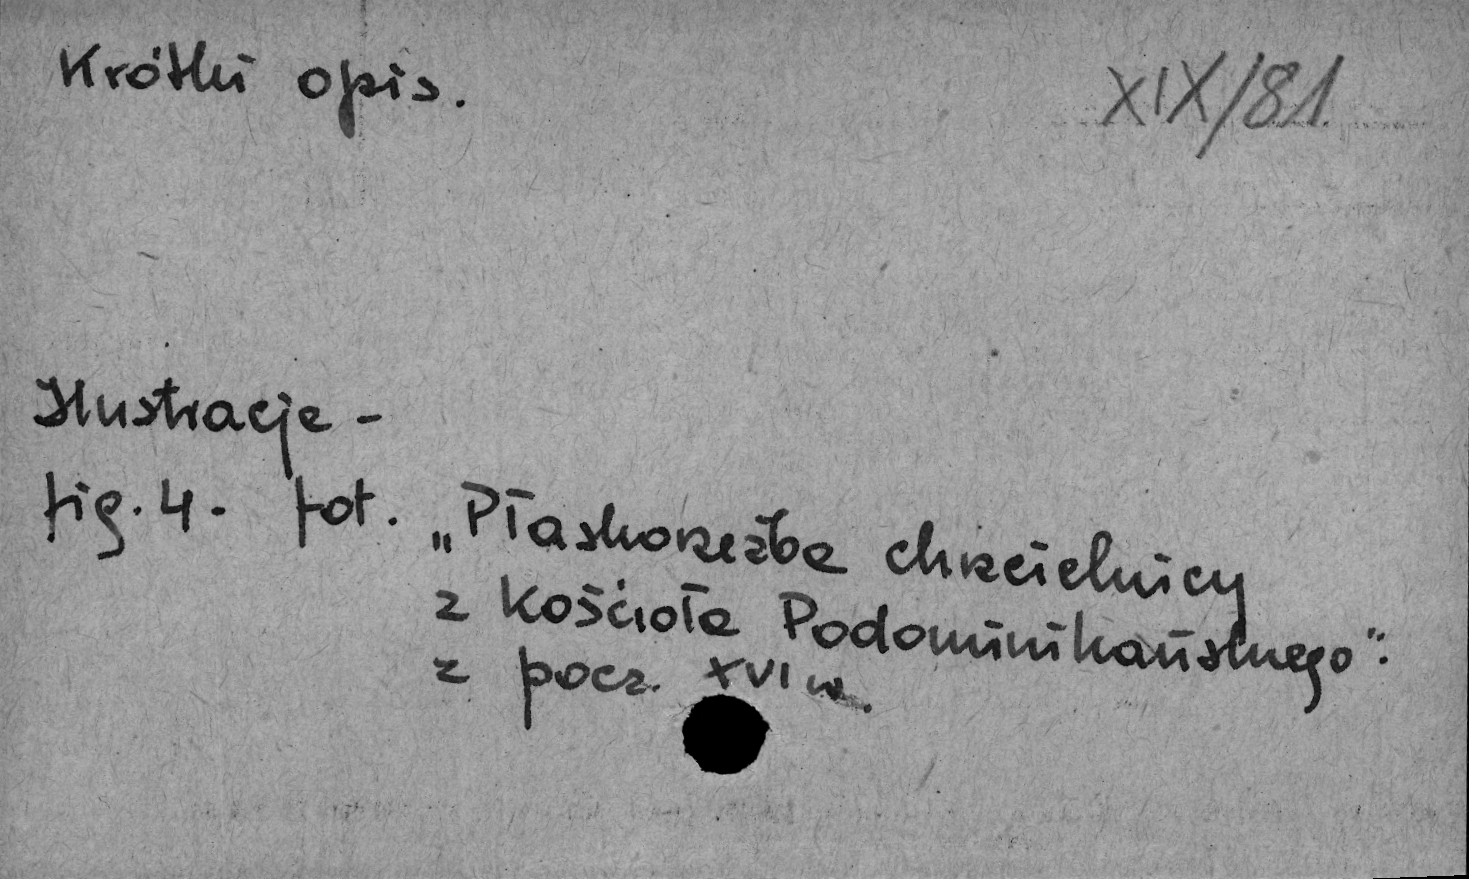 Krótki opis.
XIX/81
Ilustracje -
fig. 4. fot. „Płaskorzeźba chrzcielnicy
z kościoła Podominikańskiego".
z pocz. XVI w.